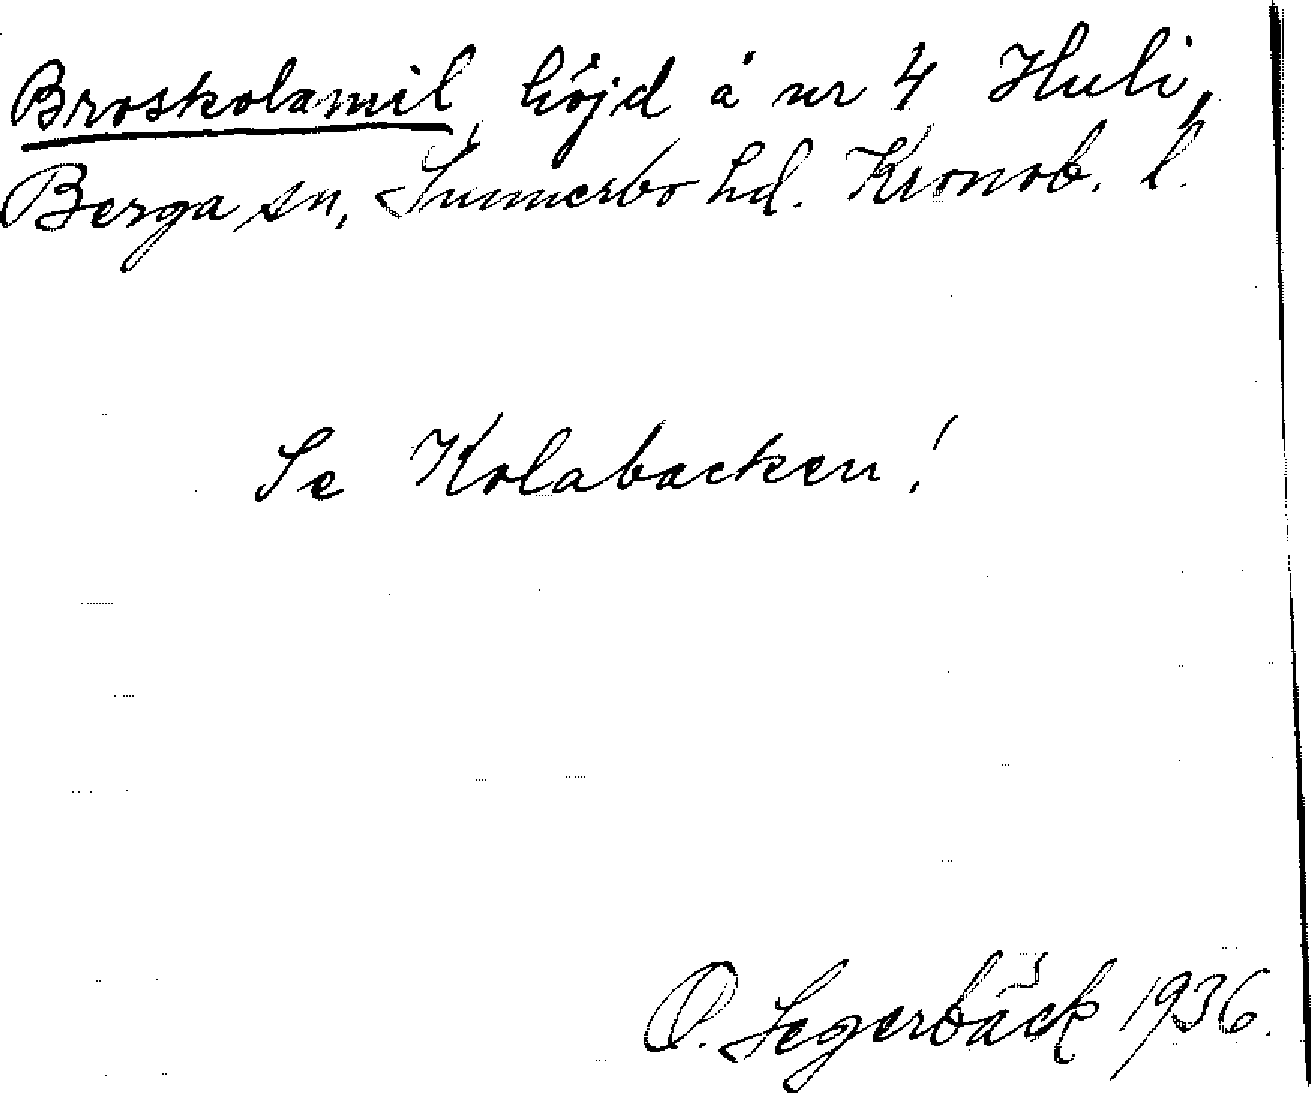 Broskolamil, höjd å nr 4 Huli,
Berga sn, Sunnerbo hd. Kronob. l.
Se Kolabacken!
O. Segerbäck 1936.